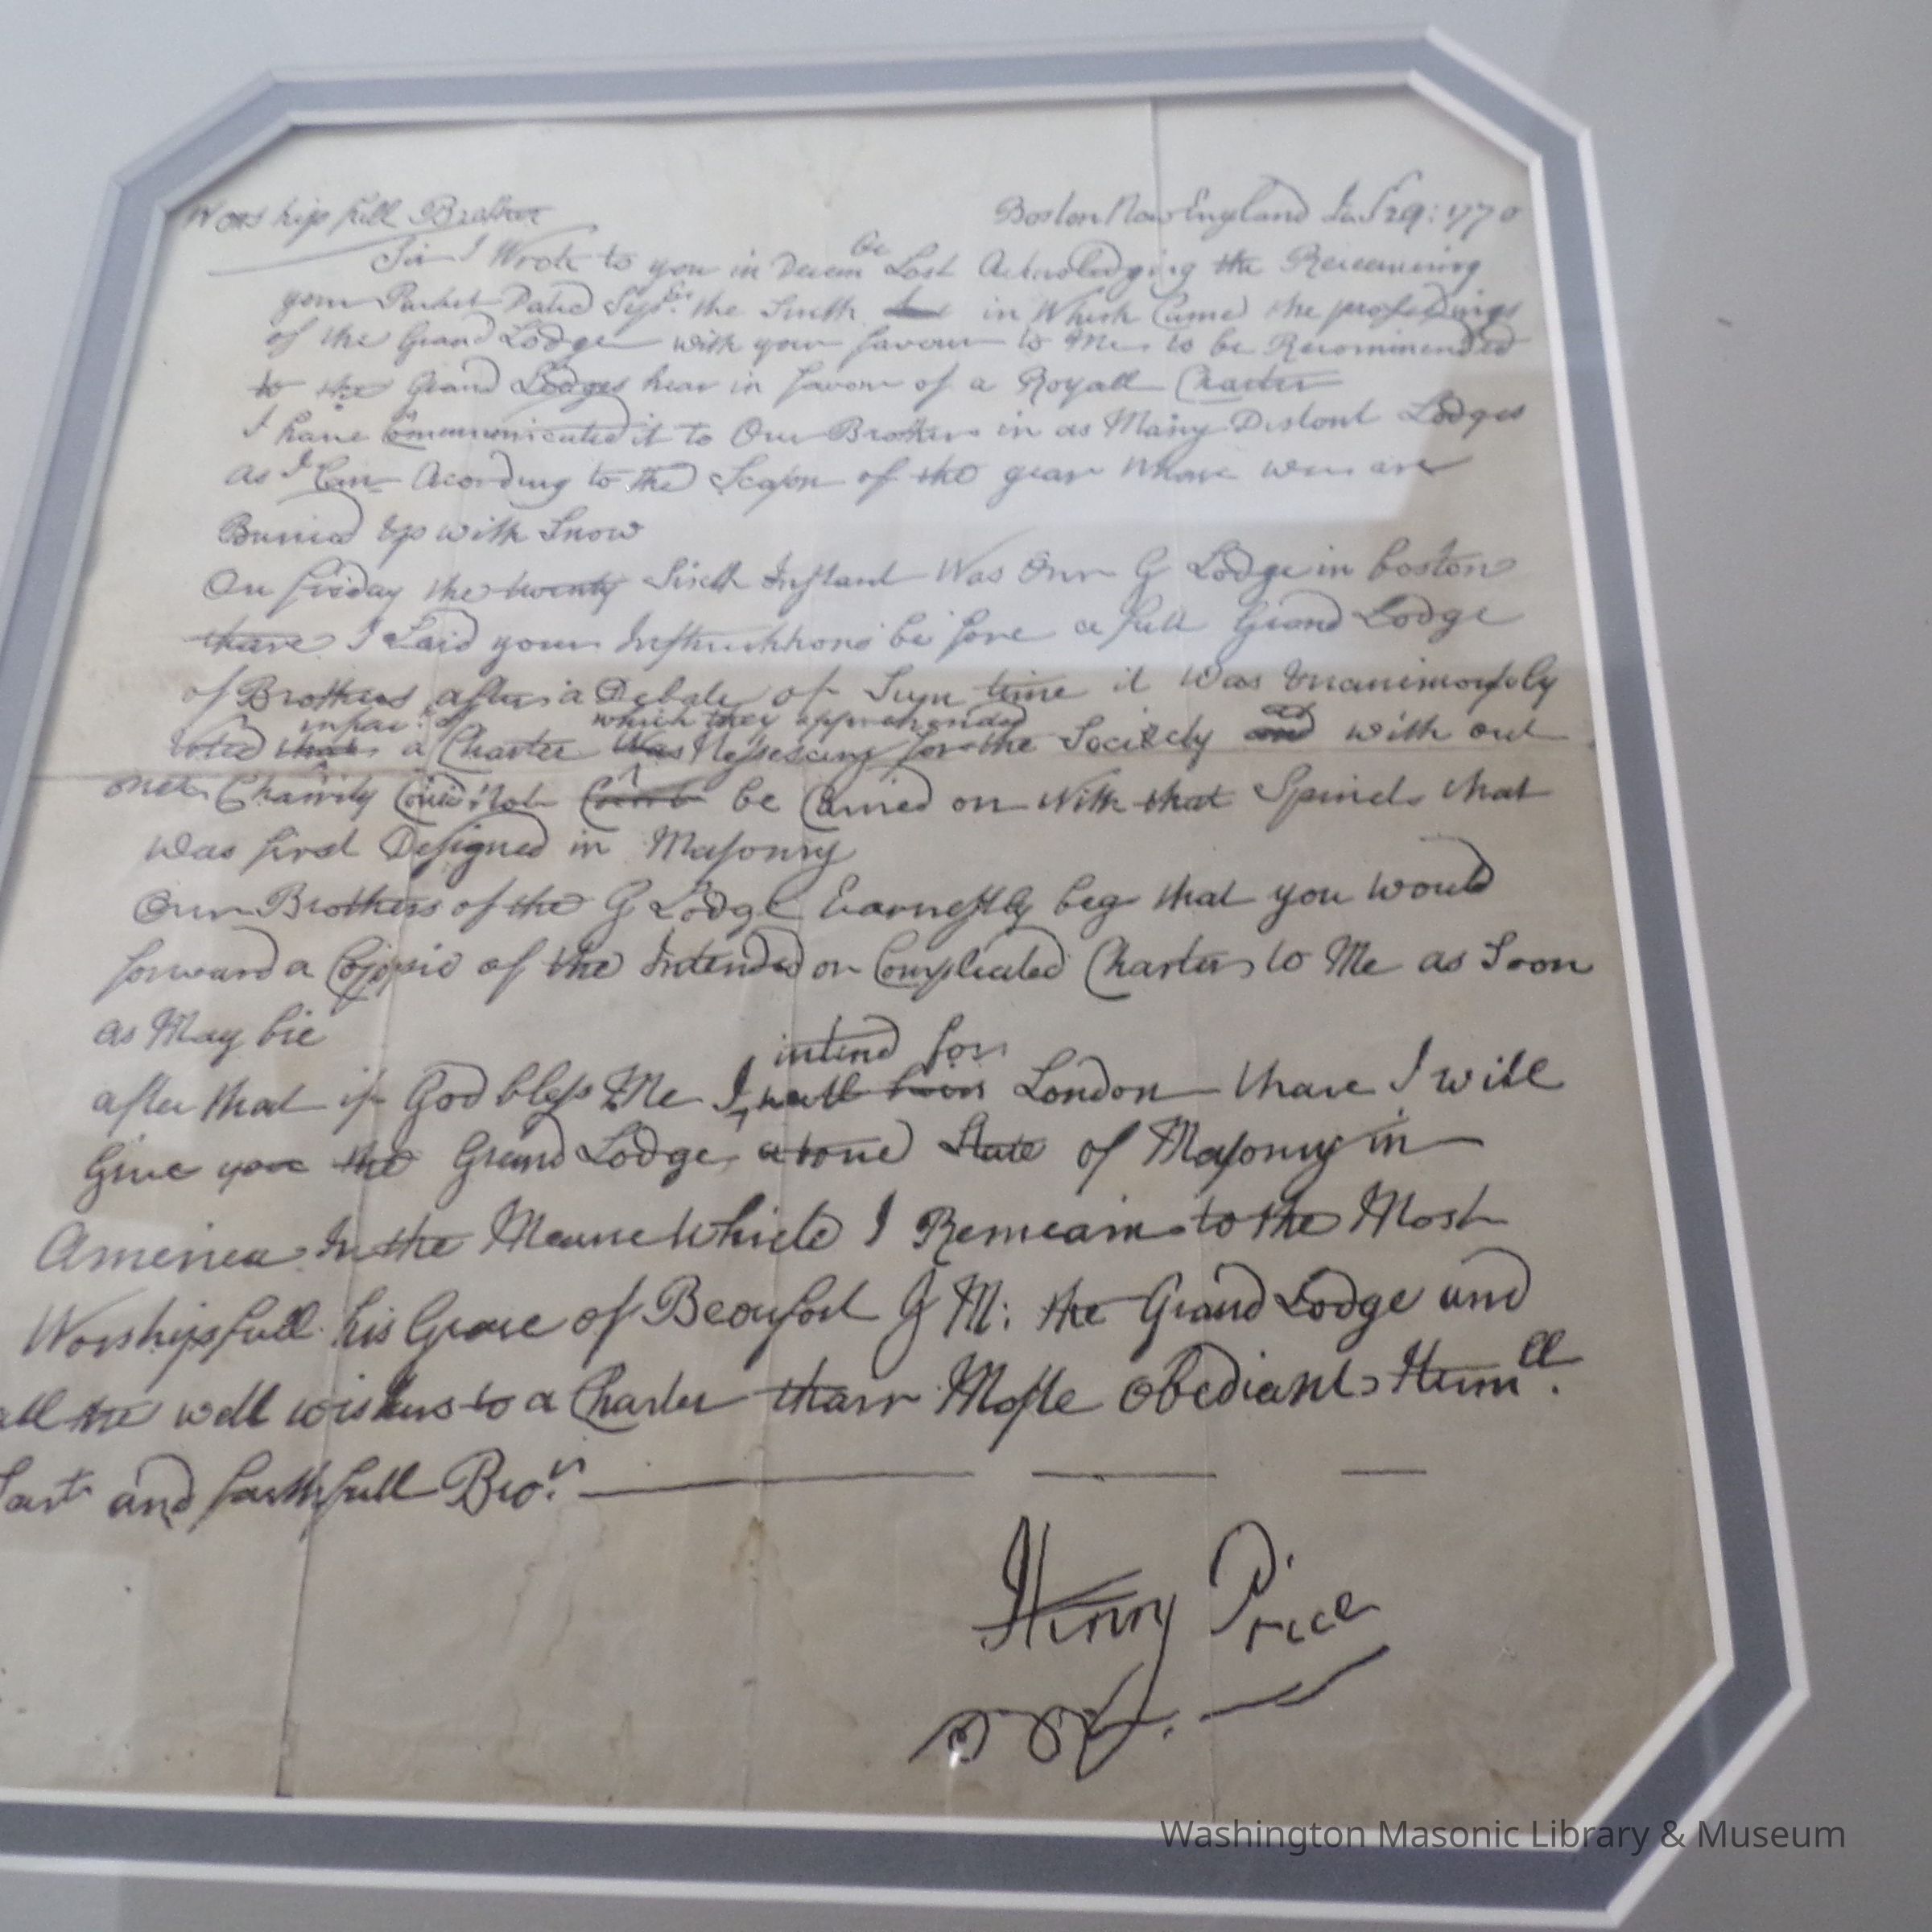 Worshipfull Brother
Boston New England Jan 29: 1770
Sir I Wrote to you in Decem be Last Acknoledging the Receaiving
your Packet Dated Sepr. the Sixth in Which Came the proseedings
of the Grand Lodge with your favour to Me to be Recommended
to the Grand Lodges hear in favour of a Royall Charter
I have Communicated it to Our Brothers in as Many Distant Lodges
as I Can Acording to the Season of the year Whare wee are
Buried Up with Snow
On friday the twenty Sixth Instant Was Our G Lodge in boston
thare I Laid your Instrucktions be fore a full Grand Lodge
of Brothers after a Debate of Sum time it Was Unanimously
in fav: of which they apprehended
Voted that a Charter Was Nessescary for the Society and with out
one Charrity Coud Not be Carried on With that Spirrit that
was first Designed in Masonry
Our Brothers of the G Lodge Earnestly beg that you would
forward a Coppie of the Intended or Compleated Charter to Me as Soon
as May bie
intend for
after that if God bless Me I London thare I will
Give you the Grand Lodge a true State of Masonry in
America In the Meane While I Remain to the Most
Worshipfull his Grace of Beaufort G M: the Grand Lodge and
all the well wishers to a Charter thare Moste obediant Humll.
Sart and faithfull Bror.
Henry Price